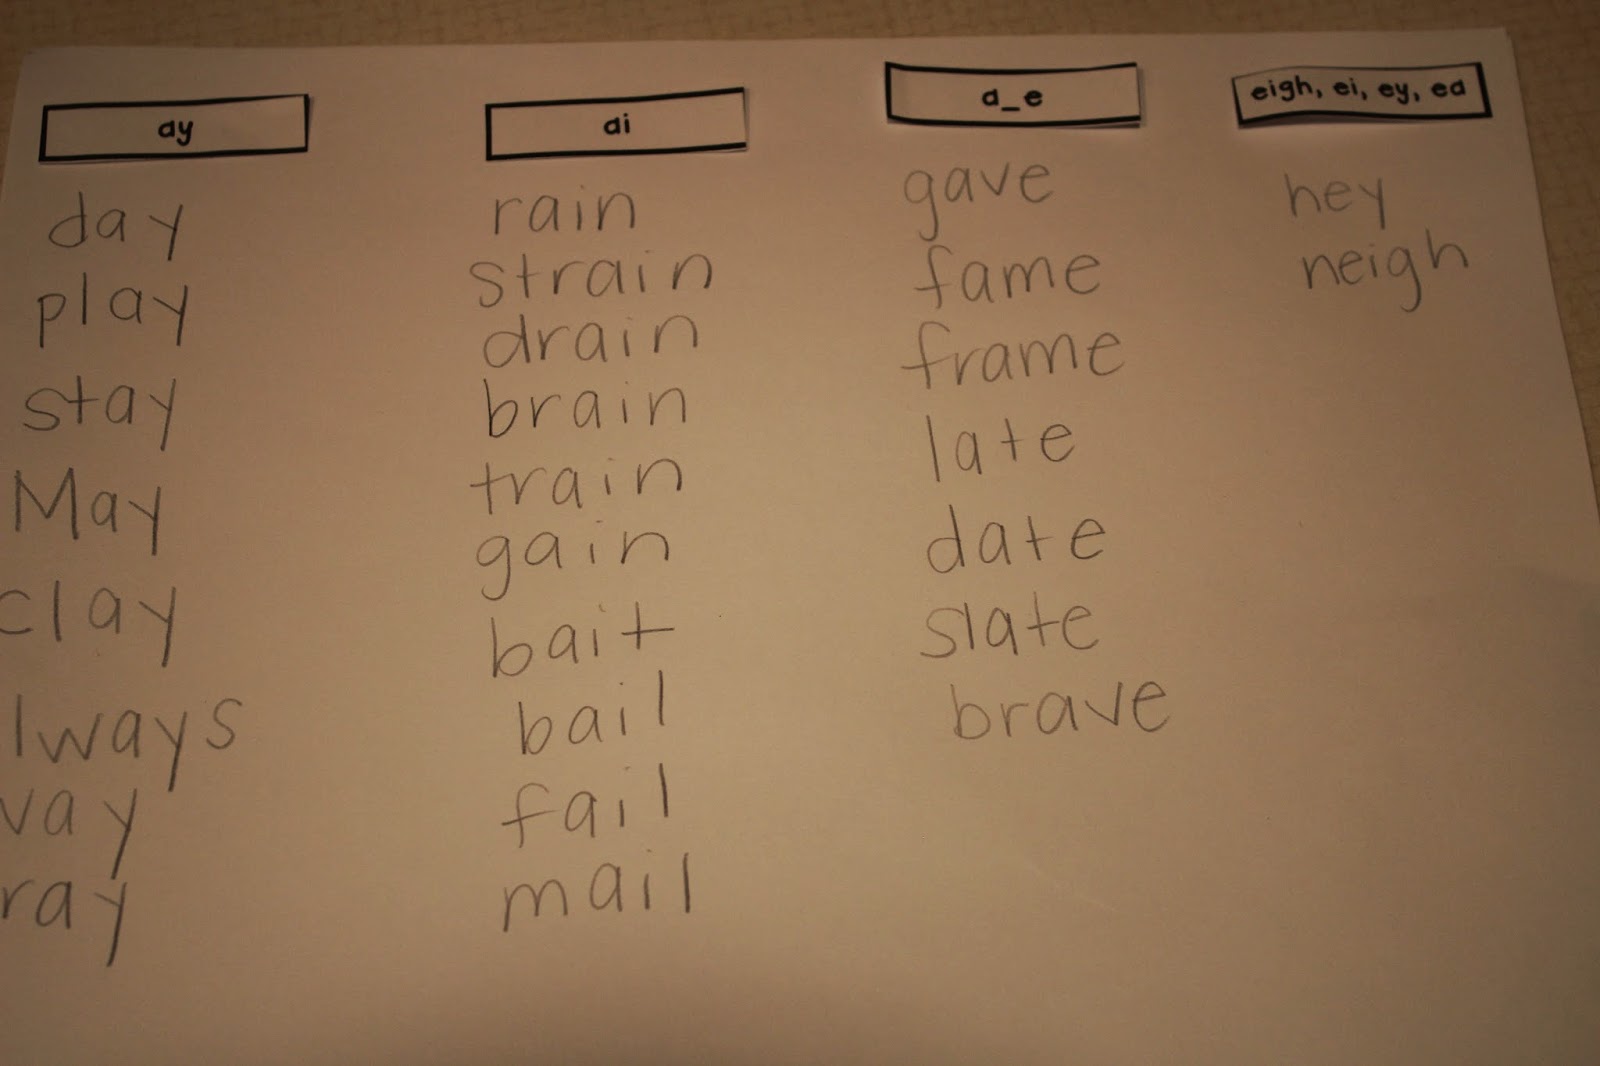 ay
day
play
stay
May
clay
lways
vay
ray
ai
rain
strain
drain
brain
train
gain
bait
bail
fail
mail
a_e
gave
fame
frame
late
date
slate
brave
eigh, ei, ey, ea
hey
neigh